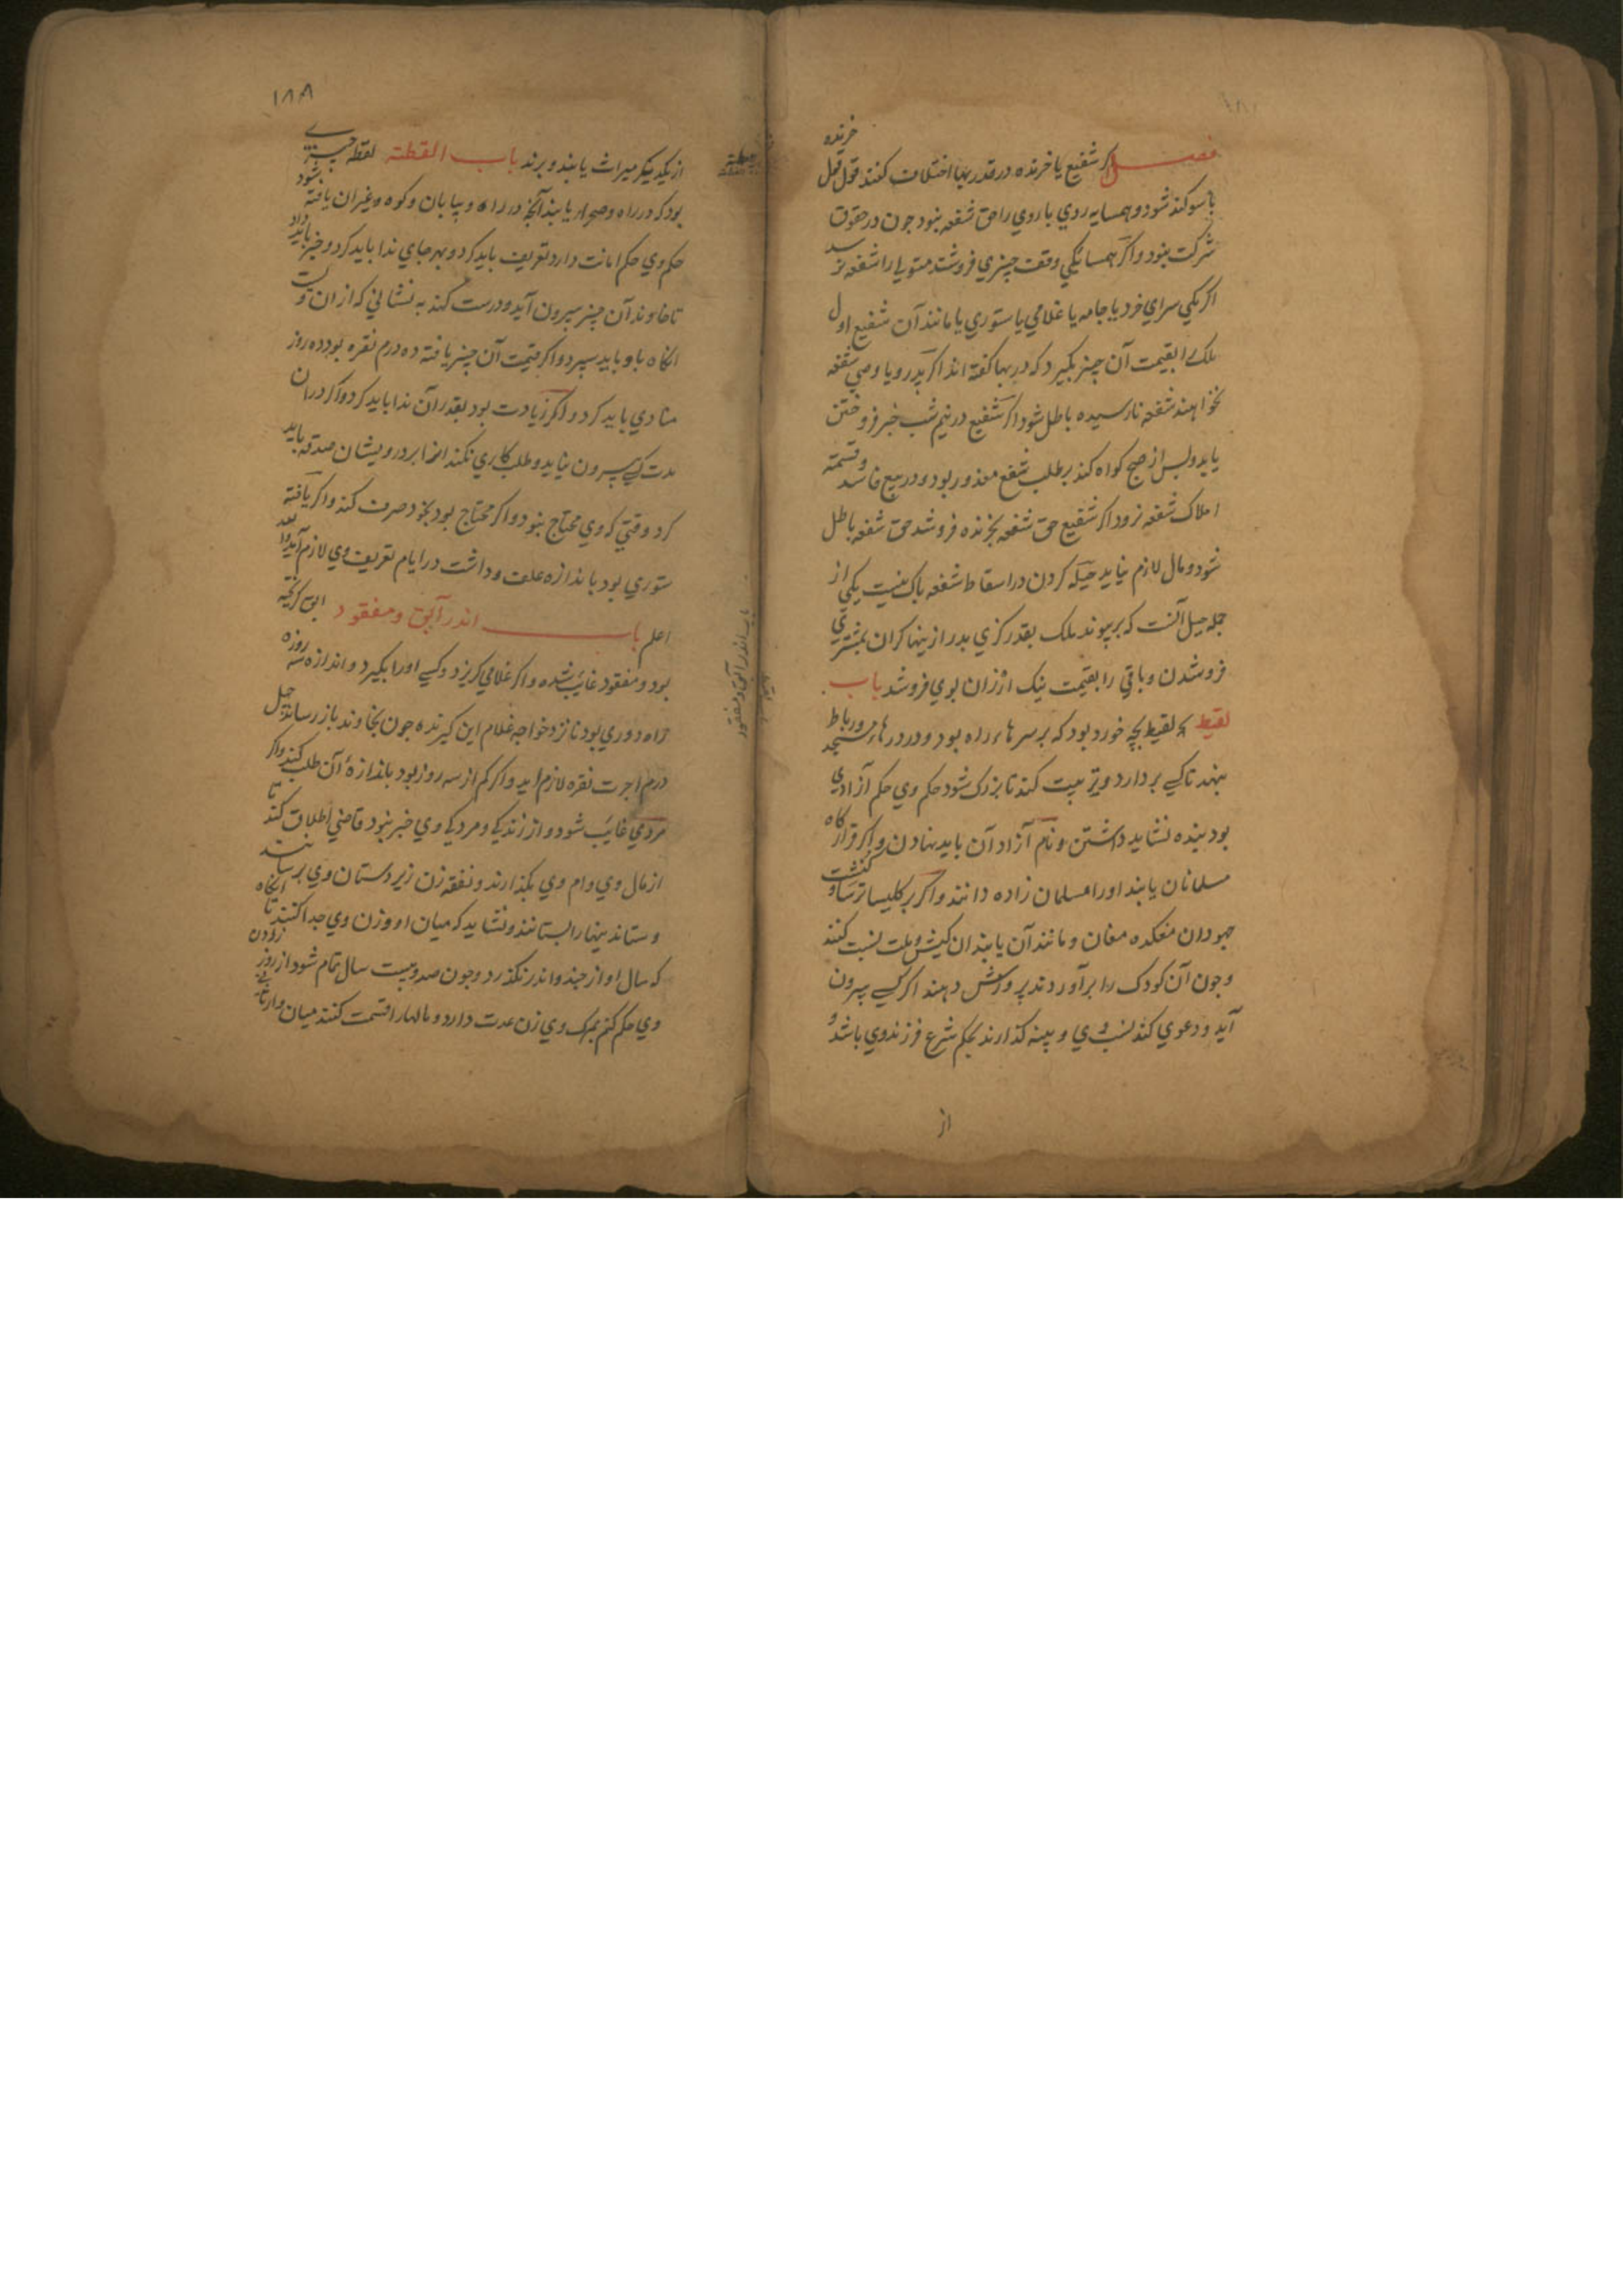 فصل اکر شفیع یا خرنده در قدر بها اختلاف کنند قول قول خرنده
با سوکند شود و همسایه روی با روی را حق شفعه نبود جون در حقوق
شرکت نبود و اکر همسایکی وقف چیزی فروشند متولی را شفعه نرسد
اکر یکی سرای خرد یا جامه یا غلامی یا ستوری یا مانند آن شفیع اول
ملک را بقیمت آن چیز بکیرد که در بها کفته اند اکر پدر و یا وصی شفعه
نخواهند شفعه نارسیده باطل شود اکر شفیع در نیم شب خبر فروختن
یابد و پس از صبح کواه کند بر طلب شفع معذور بود و در بیع فاسد و قسمته
املاک شفعه نرود اکر شفیع حق شفعه بخرنده فروشد حق شفعه باطل
شود و مال لازم نیاید حیله کردن در اسقاط شفعه باک نیست یکی از
جمله حیل آنست که بر پیوند ملک بقدر کزی بدر از پنها کران بمشتری
فروشدن و باقی را بقیمت نیک ارزان بوی فروشد باب
لقیط لقیط بچه خورد بود که بر سرهاء راه بود و در درهاء مسجد و رباط
بنهند تا کسی بردارد و تربیت کند تا بزرک شود حکم وی حکم آزادی
بود بنده نشاید داشتن و نام آزاد آن باید نهادن و اکر قرارکاه
مسلمانان یابند اورا مسلمان زاده دانند و اکر بر کلیسا ترسا و کنشت
جهودان مغکده مغان و مانند آن یابند ان کیش و ملت نسبت کنند
و جون آن کودک را برآوردند پرورش دهند اکر کسی بیرون
آید و دعوی کند نسب وی و بینه کذارند بحکم شرع فرزند وی باشد و
از
۱۸۸
از یکدیکر میراث یابند و برند باب القطته لقطه چیزی
بود که در راه و صحرا یابند آنچه در راه و بیابان و کوه و غیر ان یافته شود
حکم وی حکم امانت دارد تعریف باید کرد و بهر جای ندا باید کرد و خبر باید داد
تا خاوند آن چیز بیرون آید و درست کند به نشانی که از ان ویست
انکاه باو باید سپرد و اکر قیمت آن چیز یافته ده درم نقره بود ده روز
منادی باید کرد و اکر زیادت بود بقدر آن ندا باید کرد و اکر در ان
مدت کسی بیرون نیاید و طلب کاری نکند انرا بر درویشان صدقه باید
کرد وقتی که وی محتاج نبود و اکر محتاج بود بخود صرف کند و اکر یافته
ستوری بود باندازه علف و داشت در ایام تعریف وی لازم آید والله
اعلم باب اندر آبق و مفقود ابق کریخته
بود و مفقود غائب شده و اکر غلامی کریزد و کسی اورا بکیرد و اندازه سه روزه
راه دوری بود تا نزد خواجه غلام این کیرنده جون بخاوند باز رساند چهل
درم اجرت نقره لازم اید و اکر کم از سه روز بود باندازهٔ آن طلب کند و اکر
مردمی غائب شود و از زندکی و مردکی وی خبر نبود قاضی اطلاق کند تا
از مال وی وام وی بکذارند و نفقه زن زیردستان وی برسانند
و ستاندنیها را بستانند و نشاید که میان او و زن وی جدا کنند تا انکاه
که سال او از حد و اندر نکذرد و جون صد و بیست سال تمام شود از روز زادن
وی حکم کنم بمرک وی زن عدت دارد و مالها را قسمت کنند میان وارثان
باب اندر آبق و مفقود